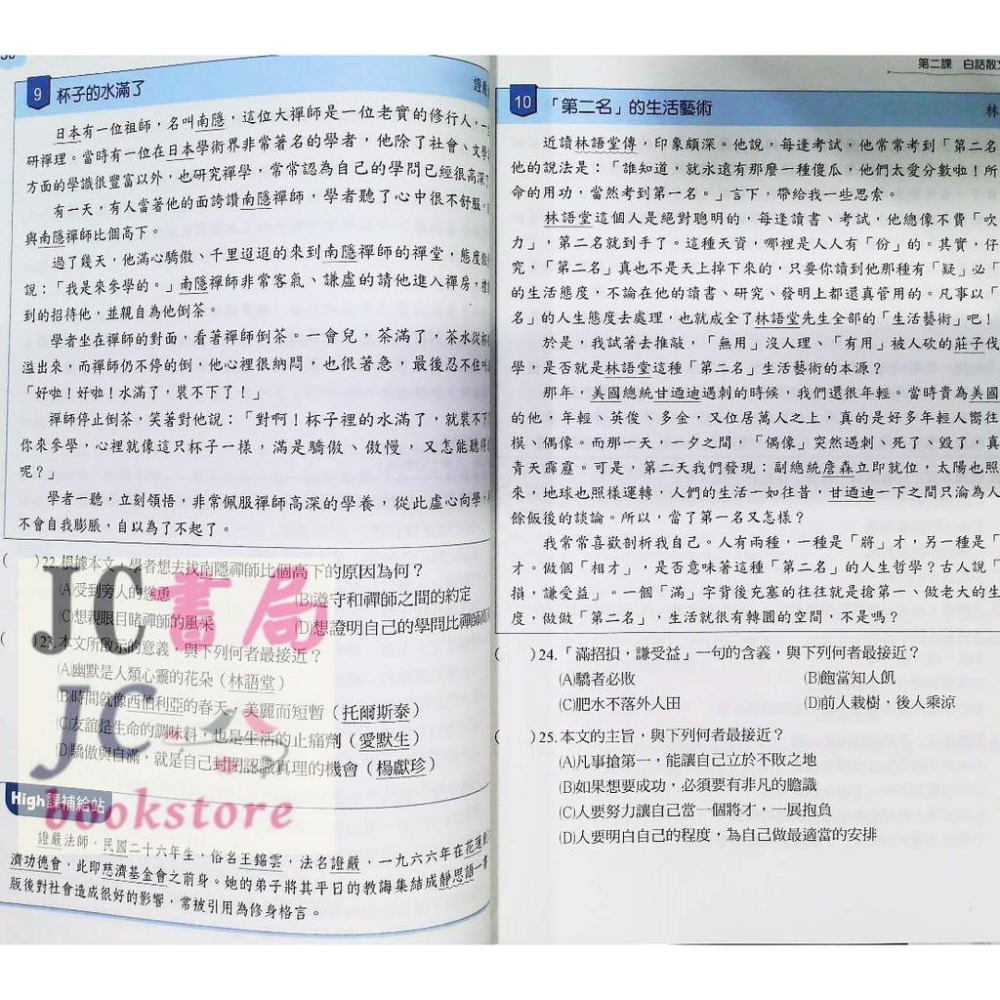 9 杯子的水滿了 證嚴
日本有一位祖師，名叫南隱，這位大禪師是一位老實的修行人，一
研禪理。當時有一位在日本學術界非常著名的學者，他除了社會、文學
方面的學識很豐富以外，也研究禪學，常常認為自己的學問已經很高深了
有一天，有人當著他的面誇讚南隱禪師，學者聽了心中很不舒服，
與南隱禪師比個高下。
過了幾天，他滿心驕傲、千里迢迢的來到南隱禪師的禪堂，態度傲
說：「我是來參學的。」南隱禪師非常客氣、謙虛的請他進入禪房，禮
到的招待他，並親自為他倒茶。
學者坐在禪師的對面，看著禪師倒茶。一會兒，茶滿了，茶水從杯
溢出來，而禪師仍不停的倒，他心裡很納悶，也很著急，最後忍不住
「好啦！好啦！水滿了，裝不下了！」
禪師停止倒茶，笑著對他說：「對啊！杯子裡的水滿了，就裝不下
你來參學，心裡就像這只杯子一樣，滿是驕傲、傲慢，又怎能聽得
呢？」
學者一聽，立刻領悟，非常佩服禪師高深的學養，從此虛心向學，
不會自我膨脹，自以為了不起了。
( )22.根據本文，學者想去找南隱禪師比個高下的原因為何？
(A)受到旁人的慫恿 (B)遵守和禪師之間的約定
(C)想親眼目睹禪師的風采 (D)想證明自己的學問比禪師
( )23.本文所啟示的意義，與下列何者最接近？
(A)幽默是人類心靈的花朵（林語堂）
(B)時間就像西伯利亞的春天，美麗而短暫（托爾斯泰）
(C)友誼是生命的調味料，也是生活的止痛劑（愛默生）
(D)驕傲與自滿，就是自己封閉認識真理的機會（楊獻珍）
High課補給站
證嚴法師，民國二十六年生，俗名王錦雲，法名證嚴，一九六六年在花蓮
濟功德會，此即慈濟基金會之前身。她的弟子將其平日的教誨集結成靜思語一書
版後對社會造成很好的影響，常被引用為修身格言。
JC書局
JC
bookstore
第二課 白話散文
10 「第二名」的生活藝術 林
近讀林語堂傳，印象頗深。他說，每逢考試，他常常考到「第二名
他的說法是：「誰知道，就永遠有那麼一種傻瓜，他們太愛分數啦！所
命的用功，當然考到第一名。」言下，帶給我一些思索。
林語堂這個人是絕對聰明的，每逢讀書、考試，他總像不費「吹
力」，第二名就到手了。這種天資，哪裡是人人有「份」的。其實，仔
究，「第二名」真也不是天上掉下來的，只要你讀到他那種有「疑」必「
的生活態度，不論在他的讀書、研究、發明上都還真管用的。凡事以「
名」的人生態度去處理，也就成全了林語堂先生全部的「生活藝術」吧！
於是，我試著去推敲，「無用」沒人理、「有用」被人砍的莊子伐
學，是否就是林語堂這種「第二名」生活藝術的本源？
那年，美國總統甘迺迪遇刺的時候，我們還很年輕。當時貴為美國
的他，年輕、英俊、多金，又位居萬人之上，真的是好多年輕人嚮往
模、偶像。而那一天，一夕之間，「偶像」突然遇刺、死了、毀了，真
青天霹靂。可是，第二天我們發現：副總統詹森立即就位，太陽也照
來，地球也照樣運轉，人們的生活一如往昔，甘迺迪一下之間只淪為人
餘飯後的談論。所以，當了第一名又怎樣？
我常常喜歡剖析我自己。人有兩種，一種是「將」才，另一種是「
才。做個「相才」，是否意味著這種「第二名」的人生哲學？古人說「
損，謙受益」。一個「滿」字背後充塞的往往就是搶第一、做老大的生
度，做做「第二名」，生活就很有轉圜的空間，不是嗎？
( )24.「滿招損，謙受益」一句的含義，與下列何者最接近？
(A)驕者必敗 (B)飽當知人飢
(C)肥水不落外人田 (D)前人栽樹，後人乘涼
( )25.本文的主旨，與下列何者最接近？
(A)凡事搶第一，能讓自己立於不敗之地
(B)如果想要成功，必須要有非凡的膽識
(C)人要努力讓自己當一個將才，一展抱負
(D)人要明白自己的程度，為自己做最適當的安排